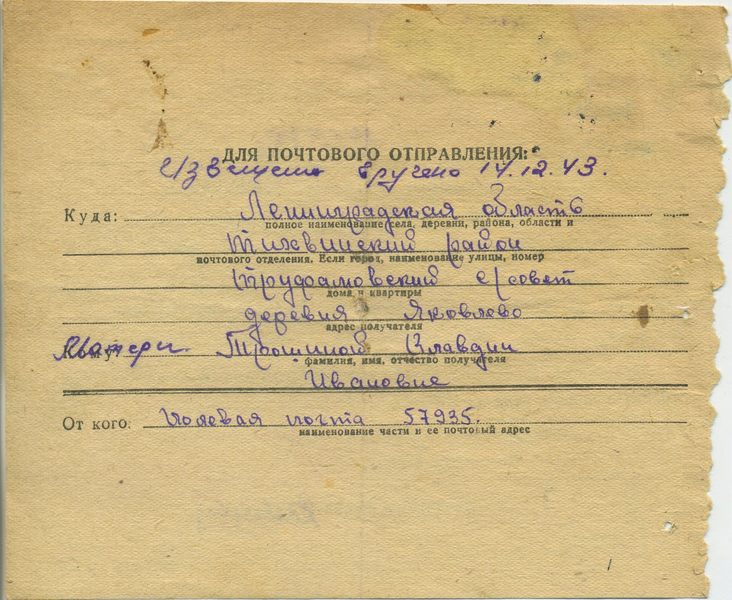 ДЛЯ ПОЧТОВОГО ОТПРАВЛЕНИЯ:
вручено 14.12.43.
Куда: Ленинградская область
полное наименование села, деревни, района, области и
Тихвинский район
почтового отделения. Если город, наименование улицы, номер
Труфановский с/совет
дома и квартиры
деревня Яковлево
адрес получателя
Матери Трошиной Клавдии
фамилия, имя, отчество получателя
Ивановне
От кого: Полевая почта 57935.
наименование части и ее почтовый адрес